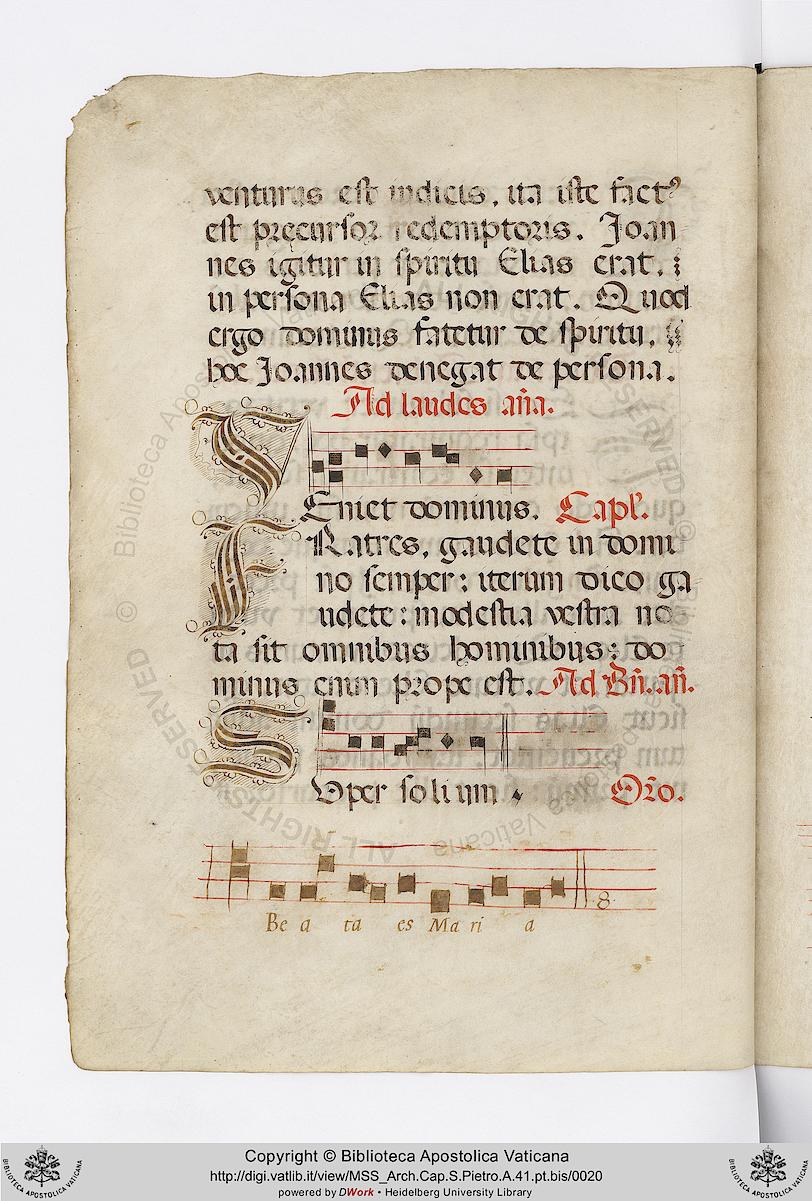 venturus est iudicis, ita iste fact⁹
est precursor redemptoris. Joan
nes igitur in spiritu Elias erat. :
in persona Elias non erat. Quod
ergo dominus fatetur de spiritu,
hoc Joannes denegat de persona.
Ad laudes an̄a.
VEniet dominus. Capl̓.
FRatres, gaudete in domi
no semper: iterum dico ga
udete: modestia vestra no
ta sit omnibus hominibus: do
minus enim prope est. Ad Bn̄. an̄.
SUper solium Or̄o.
8
Be a ta es Ma ri a
© Biblioteca Apostolica Vaticana
ALL RIGHTS RESERVED
BIBLIOTECA APOSTOLICA VATICANA
Copyright © Biblioteca Apostolica Vaticana
http://digi.vatlib.it/view/MSS_Arch.Cap.S.Pietro.A.41.pt.bis/0020
powered by DWork • Heidelberg University Library
BIBLIOTECA APOSTOLICA VATICANA